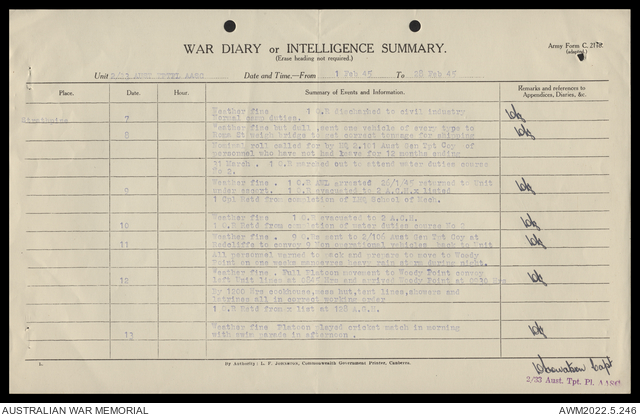 WAR DIARY or INTELLIGENCE SUMMARY.
(Erase heading not required.)
Army Form C. 2118.
(adapted.)
Unit 2/33 AUST Date and Time.—From 1 Feb 45 To 28 Feb 45
Place. Date. Hour. Summary of Events and Information. Remarks and references to Appendices, Diaries, &c.
7 Weather fine 1 O.R discharged to civil industry
Normal camp duties.
8 Weather fine but dull ,sent one vehicle of every type to
bridge to get correct tonnage for shipping
Nominal roll called for by HQ 2.101 Aust Gen Tpt Coy of
personnel who have not had leave for 12 months ending
31 March . 1 O.R marched out to attend water duties course
No 2.
9 Weather fine . 1 O.R AWL arrested 26/1/45 returned to Unit
under escort. 1 O.R evacuated to 2 A.C.H. x listed
1 Cpl Retd from completion of LHQ School of Mech.
Weather fine 1 O.R evacuated to 2 A.C.H.
10 1 O.R Retd from completion of water duties course No 2
11 Weather fine . 9 O.Rs sent to 2/106 Aust Gen Tpt Coy at
Redcliffe to convey 9 operational vehicles back to Unit
All personnel warned to pack and prepare to move to Woody
Point on one weeks manoevres heavy rain during night.
Weather fine . Full Platoon movement to Woody Point convoy
12 left Unit lines at Hrs and arrived Woody Point at 0930 Hrs
By 1200 Hrs cookhouse, mess hut, tent lines, showers and
latrines all in correct working order
1 O.R Retd from x list at A.C.H
13 Weather fine Platoon played cricket match in morning
with swim parade in afternoon .
By Authority: L. F. Johnston, Commonwealth Government Printer, Canberra.
Capt
2/33 Aust. Tpt. Pl.
AUSTRALIAN WAR MEMORIAL
AWM2022.5.246